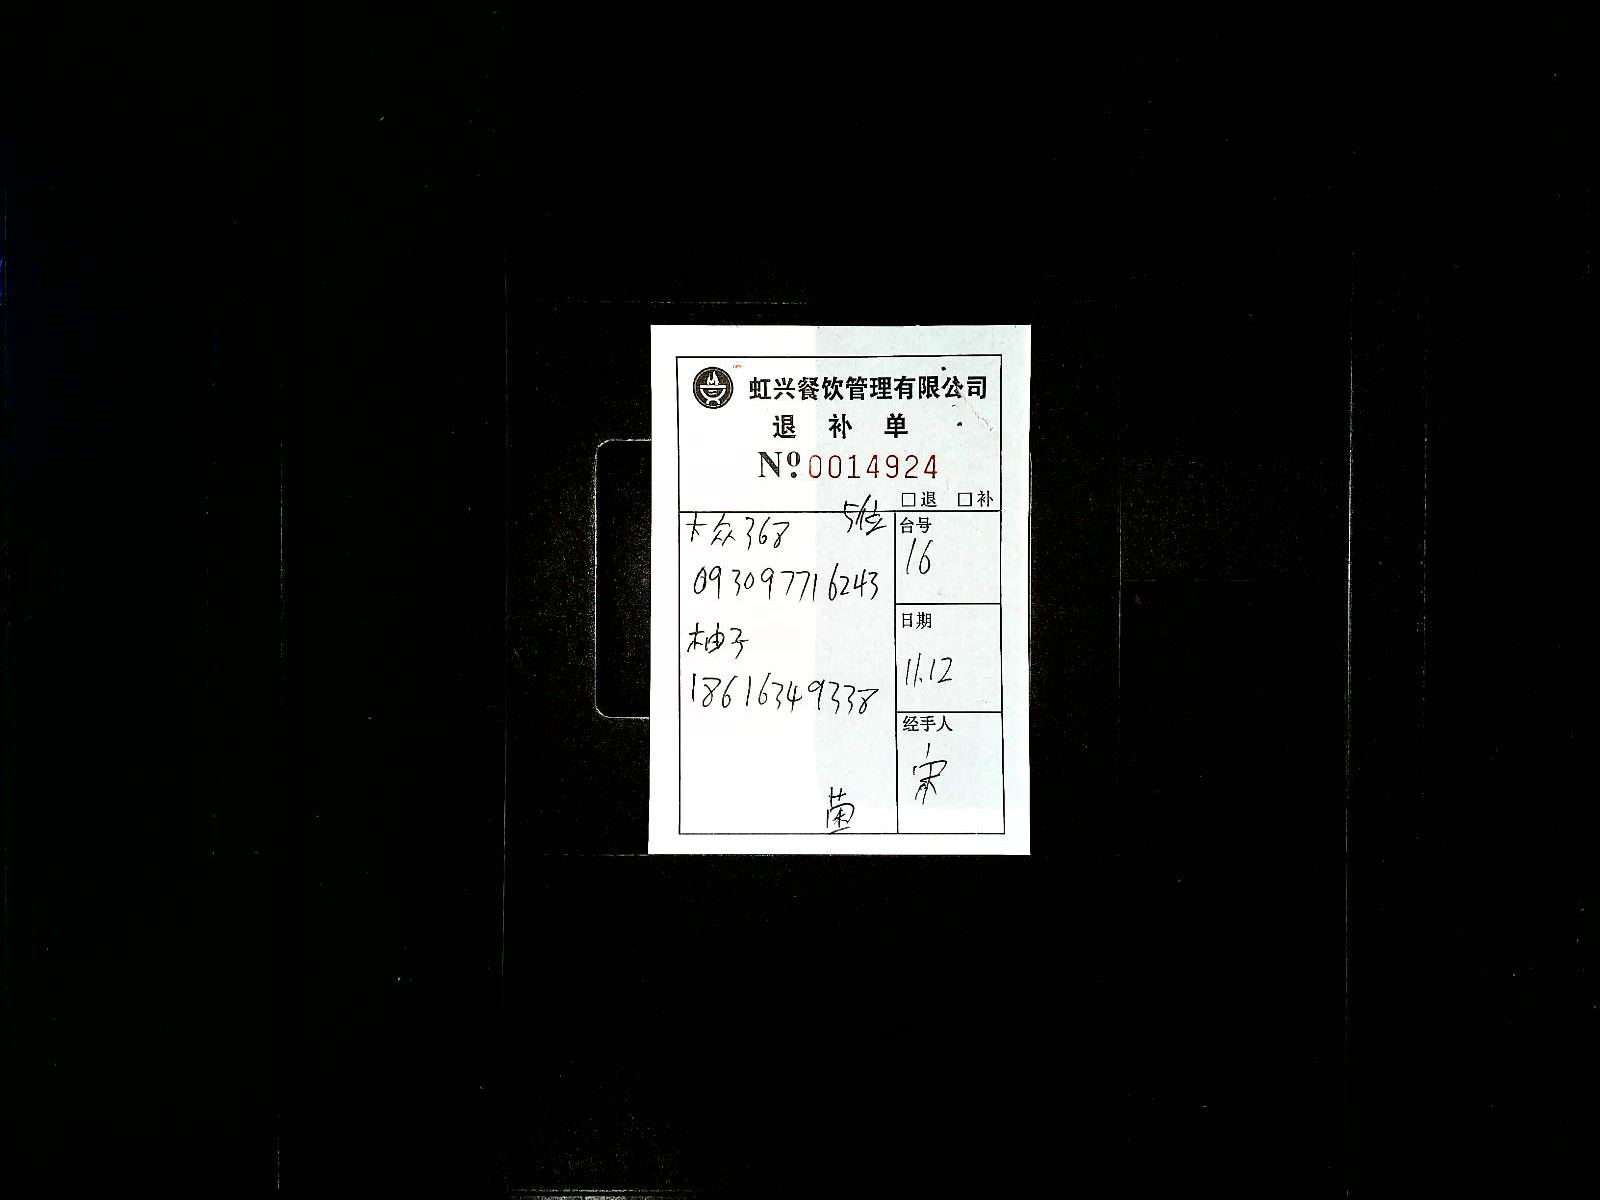 虹兴餐饮管理有限公司
退 补 单
Nº 0014924
□退 □补
大众368 5位
093097716243
柚子
18616349338
台号
16
日期
11.12
经手人
宋